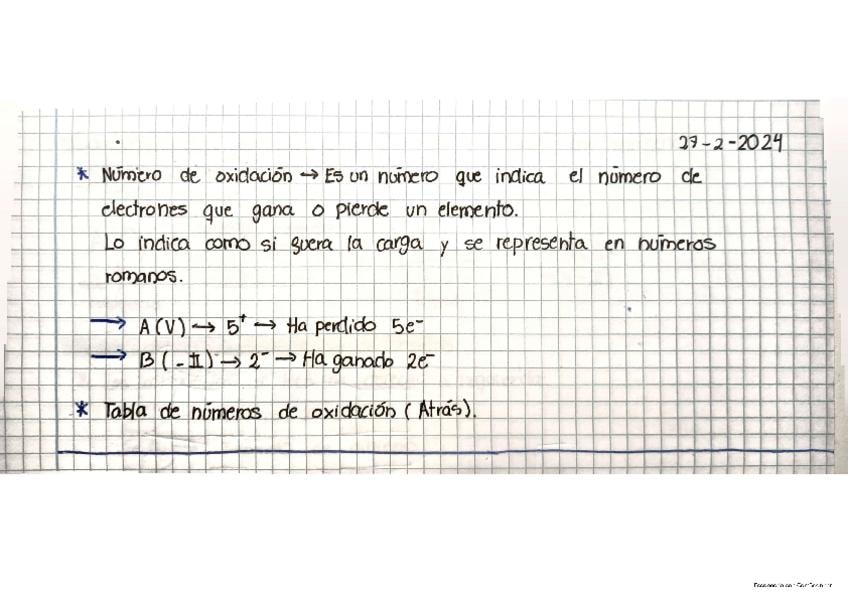 27-2-2024
* Número de oxidación → Es un número que indica el número de
electrones que gana o pierde un elemento.
Lo indica como si guera la carga y se representa en números
romanos.
→ A (V) → 5⁺ → Ha perdido 5e⁻
→ B (-II) → 2⁻ → Ha ganado 2e⁻
* Tabla de números de oxidación (Atrás).